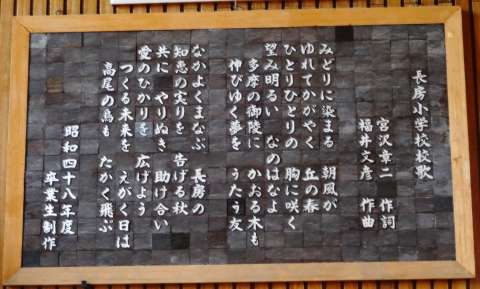 長房小学校校歌
宮沢章二 作詞
福井文彦 作曲
みどりに染まる 朝風が
ゆれてかがやく 丘の春
ひとりひとりの 胸に咲く
望み明るい なのはなよ
多摩の御陵に かおる木も
伸びゆく夢を うたう友
なかよくまなぶ 長房の
知恵の実りを 告げる秋
共に やりぬき 助け合い
愛のひかりを 広げよう
つくる未来を えがく日は
高尾の鳥も たかく飛ぶ
昭和四十八年度
卒業生制作